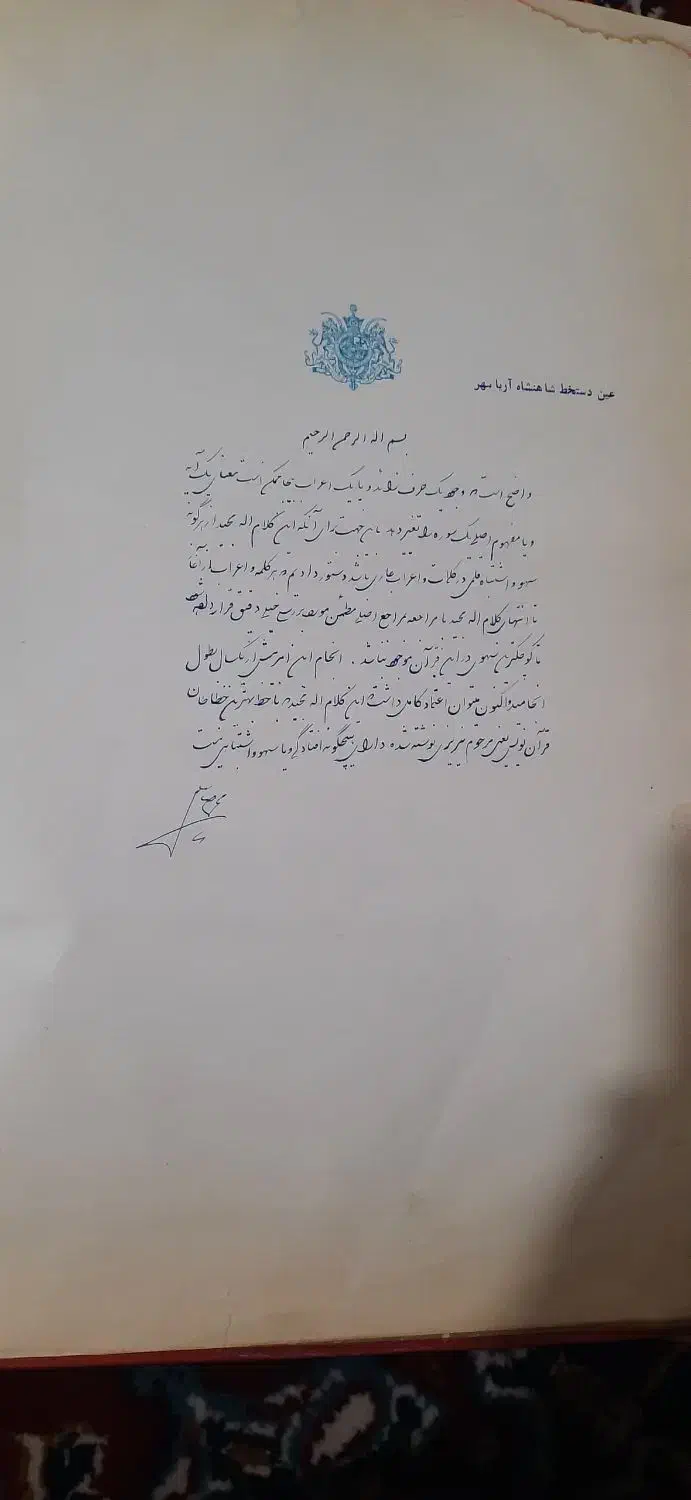 عین دستخط شاهنشاه آریا مهر
بسم اله الرحمن الرحیم
واضح است که وجود یک حرف زائد و یا یک اعراب بیجا ممکن است معنای یک آیه
و یا مفهوم اصلی یک سوره را تغییر دهد باین جهت برای آنکه این کلام اله مجید از هر گونه
سهو و اشتباه قلمی در کلمات و اعراب عاری باشد دستور دادیم که هر کلمه و اعراب آن از آغاز
تا انتهای کلام اله مجید با مراجعه بمراجع اصلی مطمئن مورد بررسی خیلی دقیق قرار داده شود
تا کوچکترین سهوی در این قرآن موجود نباشد . انجام این امر بیش از یکسال بطول
انجامید و اکنون میتوان اعتماد کامل داشت که این کلام اله مجید که با خط بهترین خطاطان
قرآن نویس یعنی مرحوم نیریزی نوشته شده دارای هیچگونه افتادگی و یا سهو و اشتباهی نیست